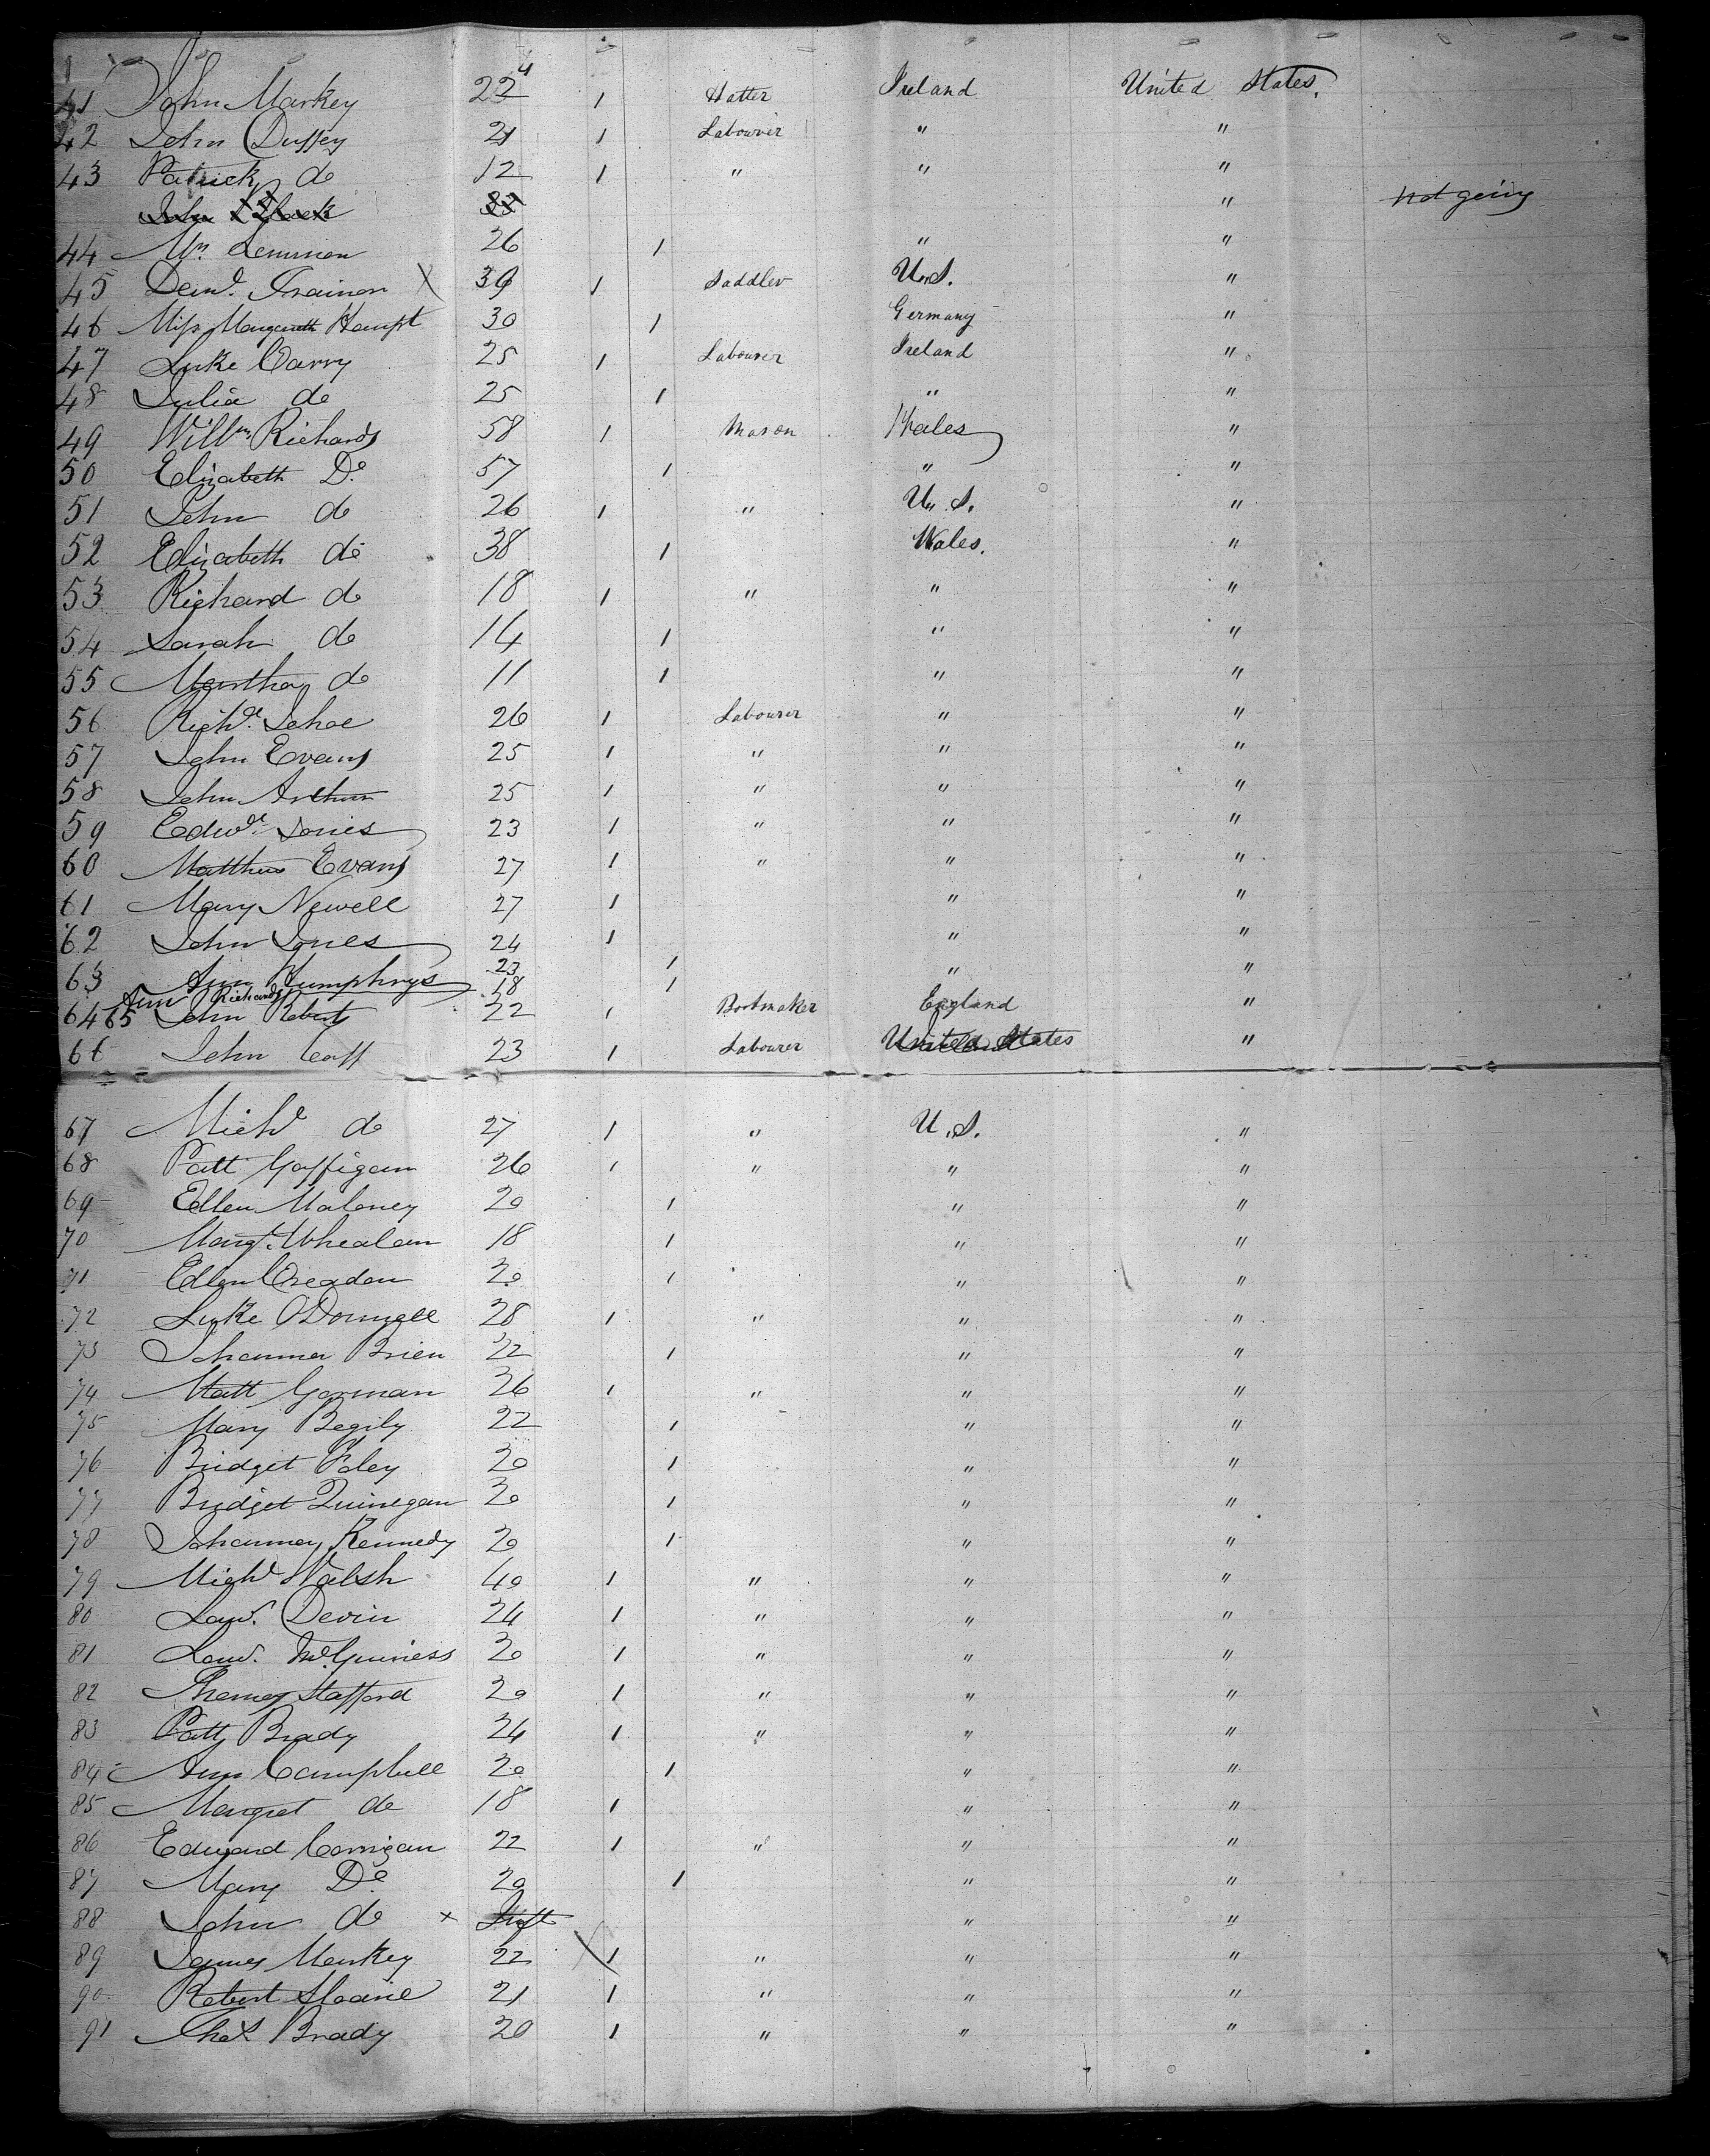 41 John Markey 22 4 1 Hatter Ireland United States.
42 John Duffey 21 1 Labourer " "
43 Patrick do 12 1 " " "
John " not going
44 Mrs Lennon 26 1 " "
45 Trainor X 39 1 Saddler U.S. "
46 Miss Margareth Haupt 30 1 Germany "
47 Luke Carry 25 1 Labourer Ireland "
48 Julia do 25 1 " "
49 Willm. Richards 58 1 Mason Wales "
50 Elizabeth Do. 57 1 " "
51 John do 26 1 " U.S. "
52 Elizabeth do 38 1 Wales. "
53 Richard do 18 1 " " "
54 Sarah do 14 1 " "
55 Martha do 11 1 " "
56 Richd. 26 1 Labourer " "
57 John Evans 25 1 " " "
58 John Arthur 25 1 " " "
59 Edwd. Jones 23 1 " " "
60 Matthew Evans 27 1 " " "
61 Mary Newell 27 1 " "
62 John Jones 24 1 " "
63 Ann Humphrys 23 1 " "
Ann Richards 18 1
64 65 John Roberts 22 1 Bootmaker England "
66 John Caff 23 1 Labourer United States "
67 Michl do 27 1 " U.S. "
68 Patt Gaffigan 26 1 " " "
69 Ellen Maloney 20 1 " "
70 Margt. Whealan 18 1 " "
71 Ellen Creadon 20 1 " "
72 Luke O'Donnell 28 1 " " "
73 Johanna Brien 22 1 " "
74 Matt Gorman 26 1 " " "
75 Mary Begily 22 1 " "
76 Bridget Foley 20 1 " "
77 Bridget Quinegan 20 1 " "
78 Johanna Kennedy 20 1 " "
79 Michl Walsh 40 1 " " "
80 Law. Devin 24 1 " " "
81 Law. McGuiness 20 1 " " "
82 Thomas Stafford 20 1 " " "
83 Patt Brady 24 1 " " "
84 Ann Campbell 20 1 " "
85 Margret do 18 1 " "
86 Edward Corrigan 22 1 " " "
87 Mary Do 20 1 " "
88 John do x Inft " "
89 James Markey 22 X 1 " " "
90 Robert Sloane 21 1 " " "
91 Thos Brady 20 1 " " "